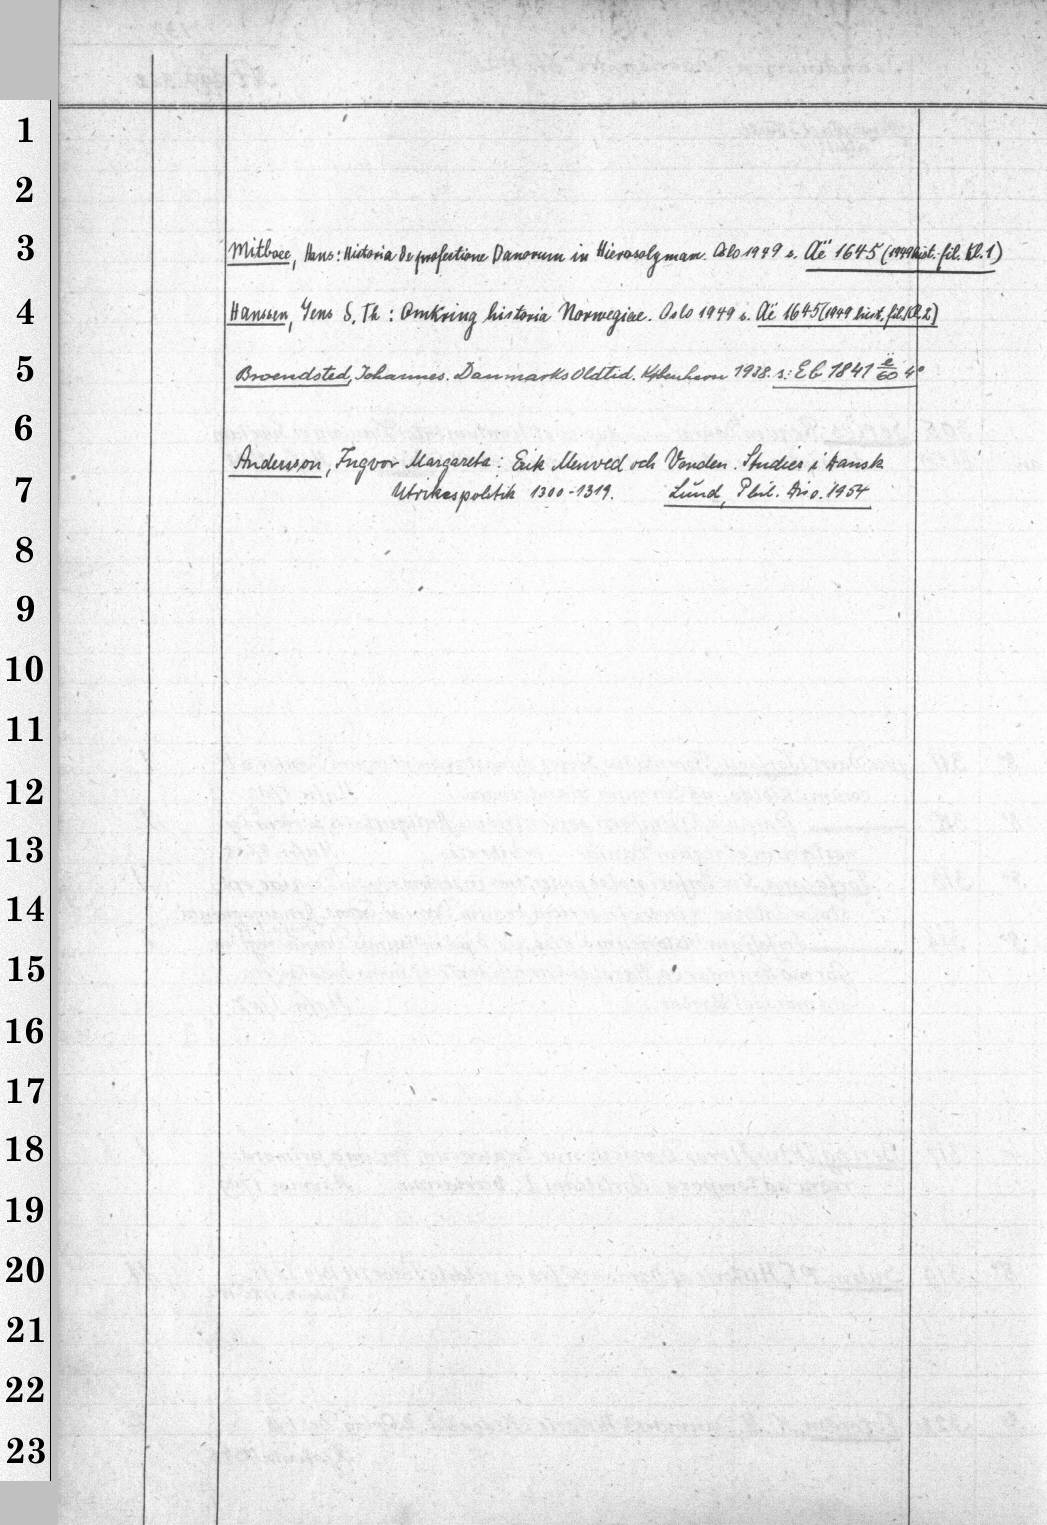 1
2
3
Mitboee, Hans: Historia de profectione Danorum in Hierosolymam. Oslo 1949 s. Aë 1645 (1949 hist.-fil. Kl. 1)
4
Hanssen, Jens S. Th: Omkring historia Norwegiae. Oslo 1949 s. Aë 1645 (1949 hist. fil. Kl. 2)
5
Broendsted, Johannes. Danmarks Oldtid. København 1938. s: Eb 1841 ë/60 4°
6
Andersson, Ingvor Margareta: Erik Menved och Venden. Studier i dansk
7
Utrikespolitik 1300-1319. Lund, Phil. Diss. 1954
8
9
10
11
12
13
14
15
16
17
18
19
20
21
22
23